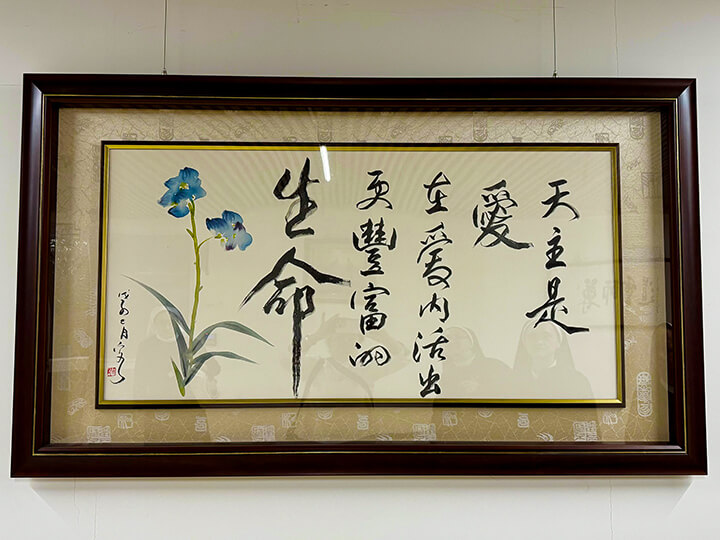 天主是
愛
在愛內活出
更豐富的
生命